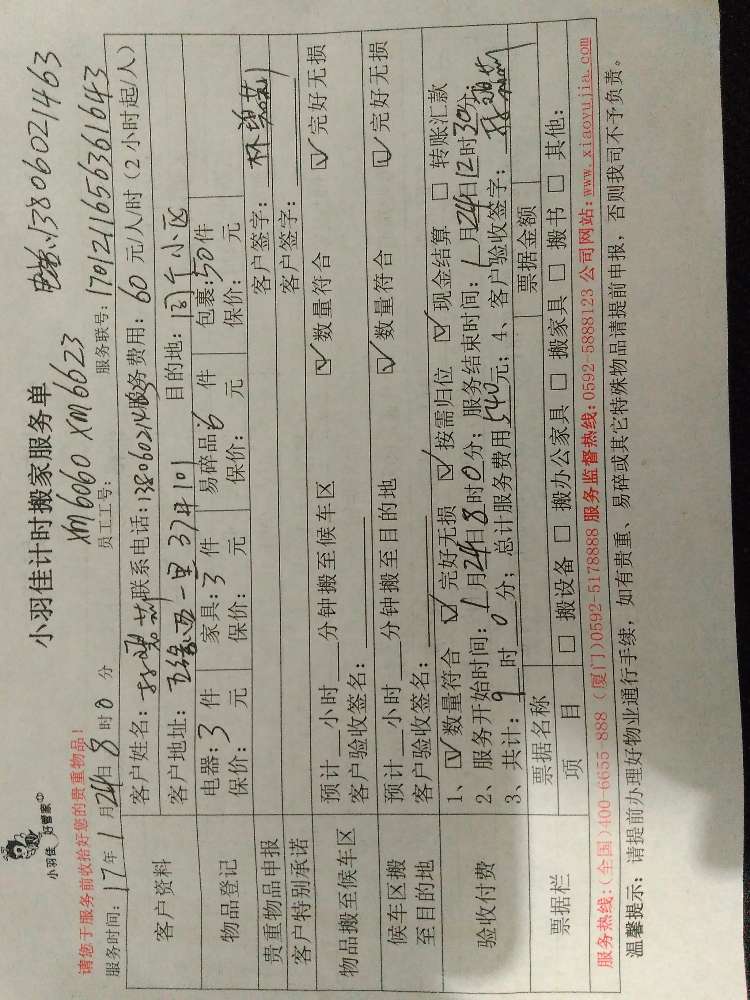 小羽佳 好管家
小羽佳计时搬家服务单
电话:13806021463
请您于服务前收拾好您的贵重物品!
XM6060 XM6623
服务时间: 17年 1月24日 8时0分 员工工号: 服务联号: 1701211656361643
客户资料
客户姓名: 林碧莉 联系电话: 服务费用: 60 元/人/时 (2小时起/人)
客户地址: 五缘西一里37#101 目的地: 小区
物品登记
电器: 3 件 家具: 3 件 易碎品: 6 件 包裹: 50件
保价: 元 保价: 元 保价: 元 保价: 元
贵重物品申报 客户签字: 林碧莉
客户特别承诺 客户签字:
物品搬至候车区
预计 小时 分钟搬至候车区 ☑数量符合 ☑完好无损
客户验收签名:
候车区搬至目的地
预计 小时 分钟搬至目的地 ☑数量符合 ☑完好无损
客户验收签名:
验收付费
1、☑数量符合 ☑完好无损 ☑按需归位 ☑现金结算 □转账汇款
2、服务开始时间: 1月24日8时0分; 服务结束时间: 1月24日12时30分
3、共计: 9时0分; 总计服务费用540元; 4、客户验收签字: 林碧莉
票据栏
票据名称 票据金额
项目 □搬设备 □搬办公家具 □搬家具 □搬书 □其他:
服务热线:(全国)400-6655-888 (厦门)0592-5178888 服务监督热线:0592-5888123 公司网站:www.xiaoyujia.com
温馨提示: 请提前办理好物业通行手续, 如有贵重、易碎或其它特殊物品请提前申报, 否则我司不予负责。